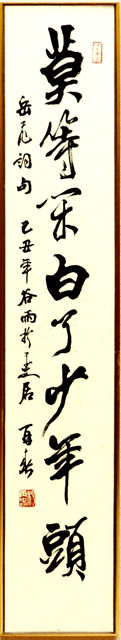 莫等闲白了少年頭
岳飞词句 己丑年谷雨於 居